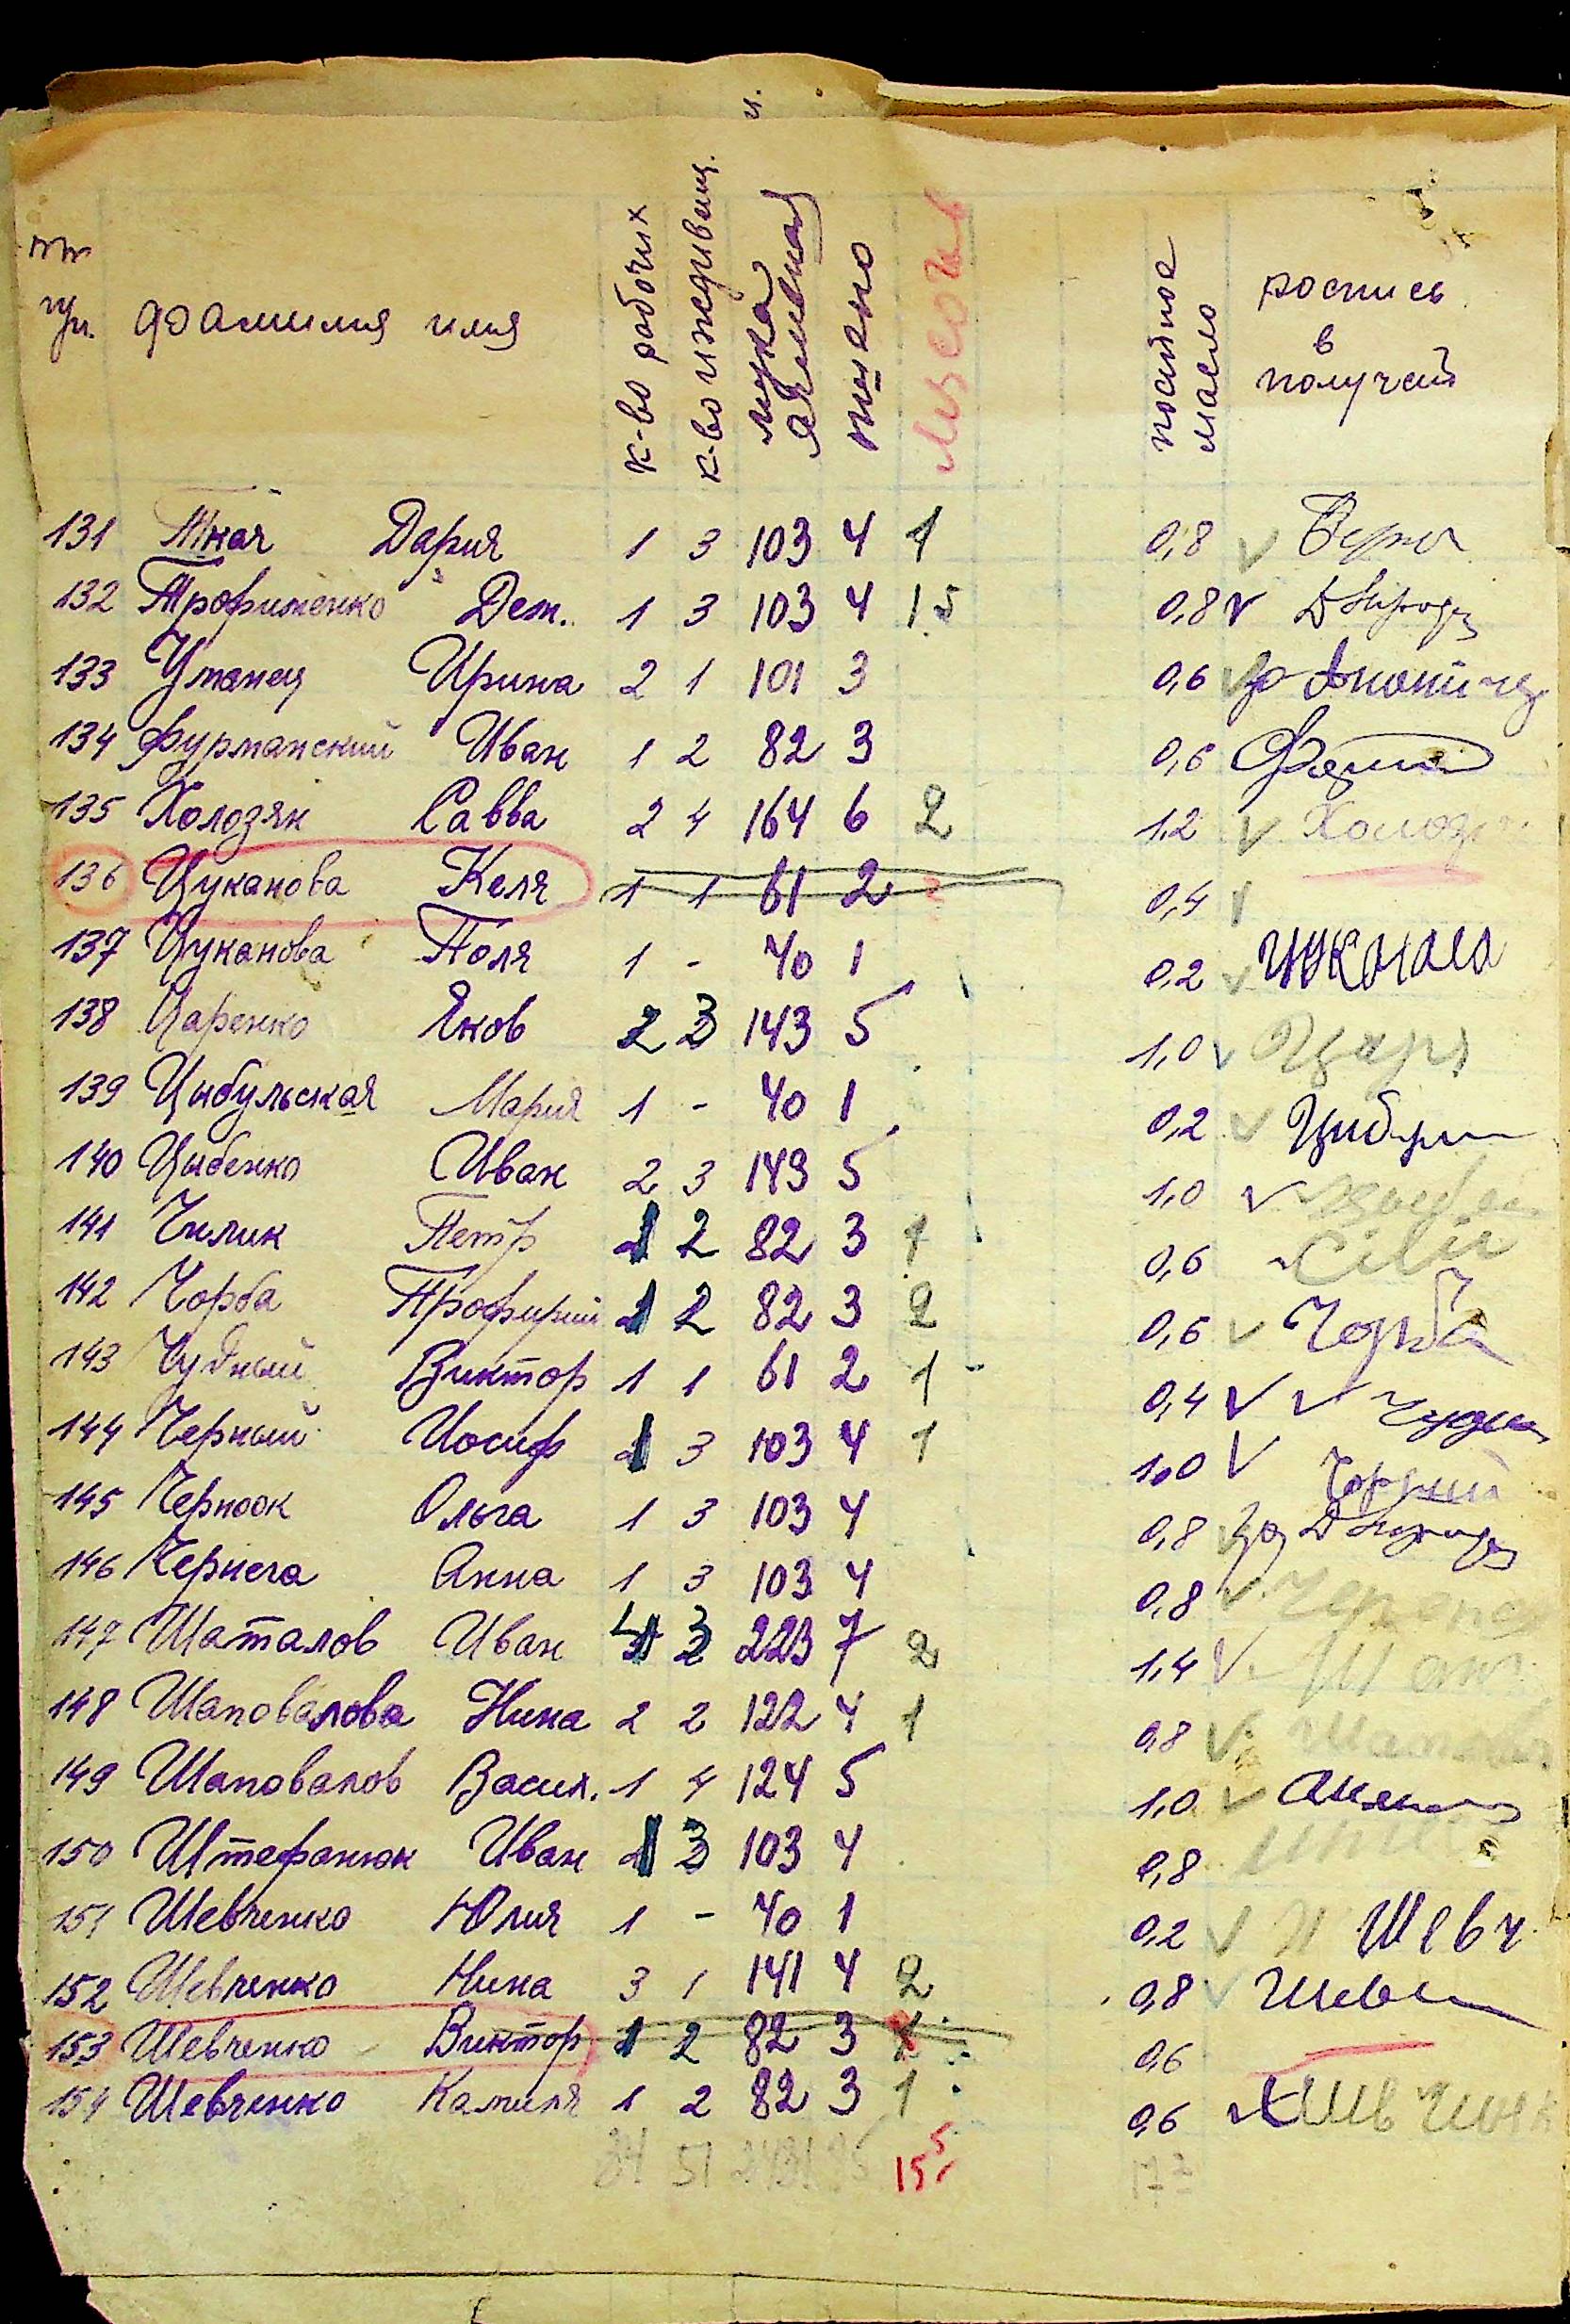 фамилия имя
к-во рабочих
к-во иждивенц.
мука ячменная
пшено
мисочек
постное масло
роспись
в
получен
131 Ткач Дария 1 3 103 4 1 0,8
132 Трофименко Дем. 1 3 103 4 1.5 0,8
133 Уманец Ирина 2 1 101 3 0,6
134 Фурманский Иван 1 2 82 3 0,6
135 Холодяк Савва 2 4 164 6 2 1,2 Холодя
136 Цуканова Келя 1 1 61 2 0,4
137 Цуканова Поля 1 - 40 1 0,2
138 Царенко Яков 2 3 143 5 1,0 Царя
139 Цыбульская Мария 1 - 40 1 0,2
140 Цыбенко Иван 2 3 143 5 1,0
141 Чилик Петр 1 2 82 3 1 0,6
142 Чорба Профирий 1 2 82 3 2 0,6 Чорба
143 Чудный Виктор 1 1 61 2 1 0,4
144 Черный Иосиф 1 3 103 4 1 1,0 Чорний
145 Черноок Ольга 1 3 103 4 0,8 за
146 Чернега Анна 1 3 103 4 0,8
147 Шаталов Иван 4 3 223 7 2 1,4 Шат
148 Шаповалова Нина 2 2 122 4 1 0,8
149 Шаповалов Васил. 1 4 124 5 1,0
150 Штефанюк Иван 1 3 103 4 0,8
151 Шевченко Юлия 1 - 40 1 0,2 Шевч
152 Шевченко Нина 3 1 141 4 2 0,8 Шевч
153 Шевченко Виктор 1 2 82 3 0,6
154 Шевченко Камиля 1 2 82 3 1 0,6
34 51 2431 15,5